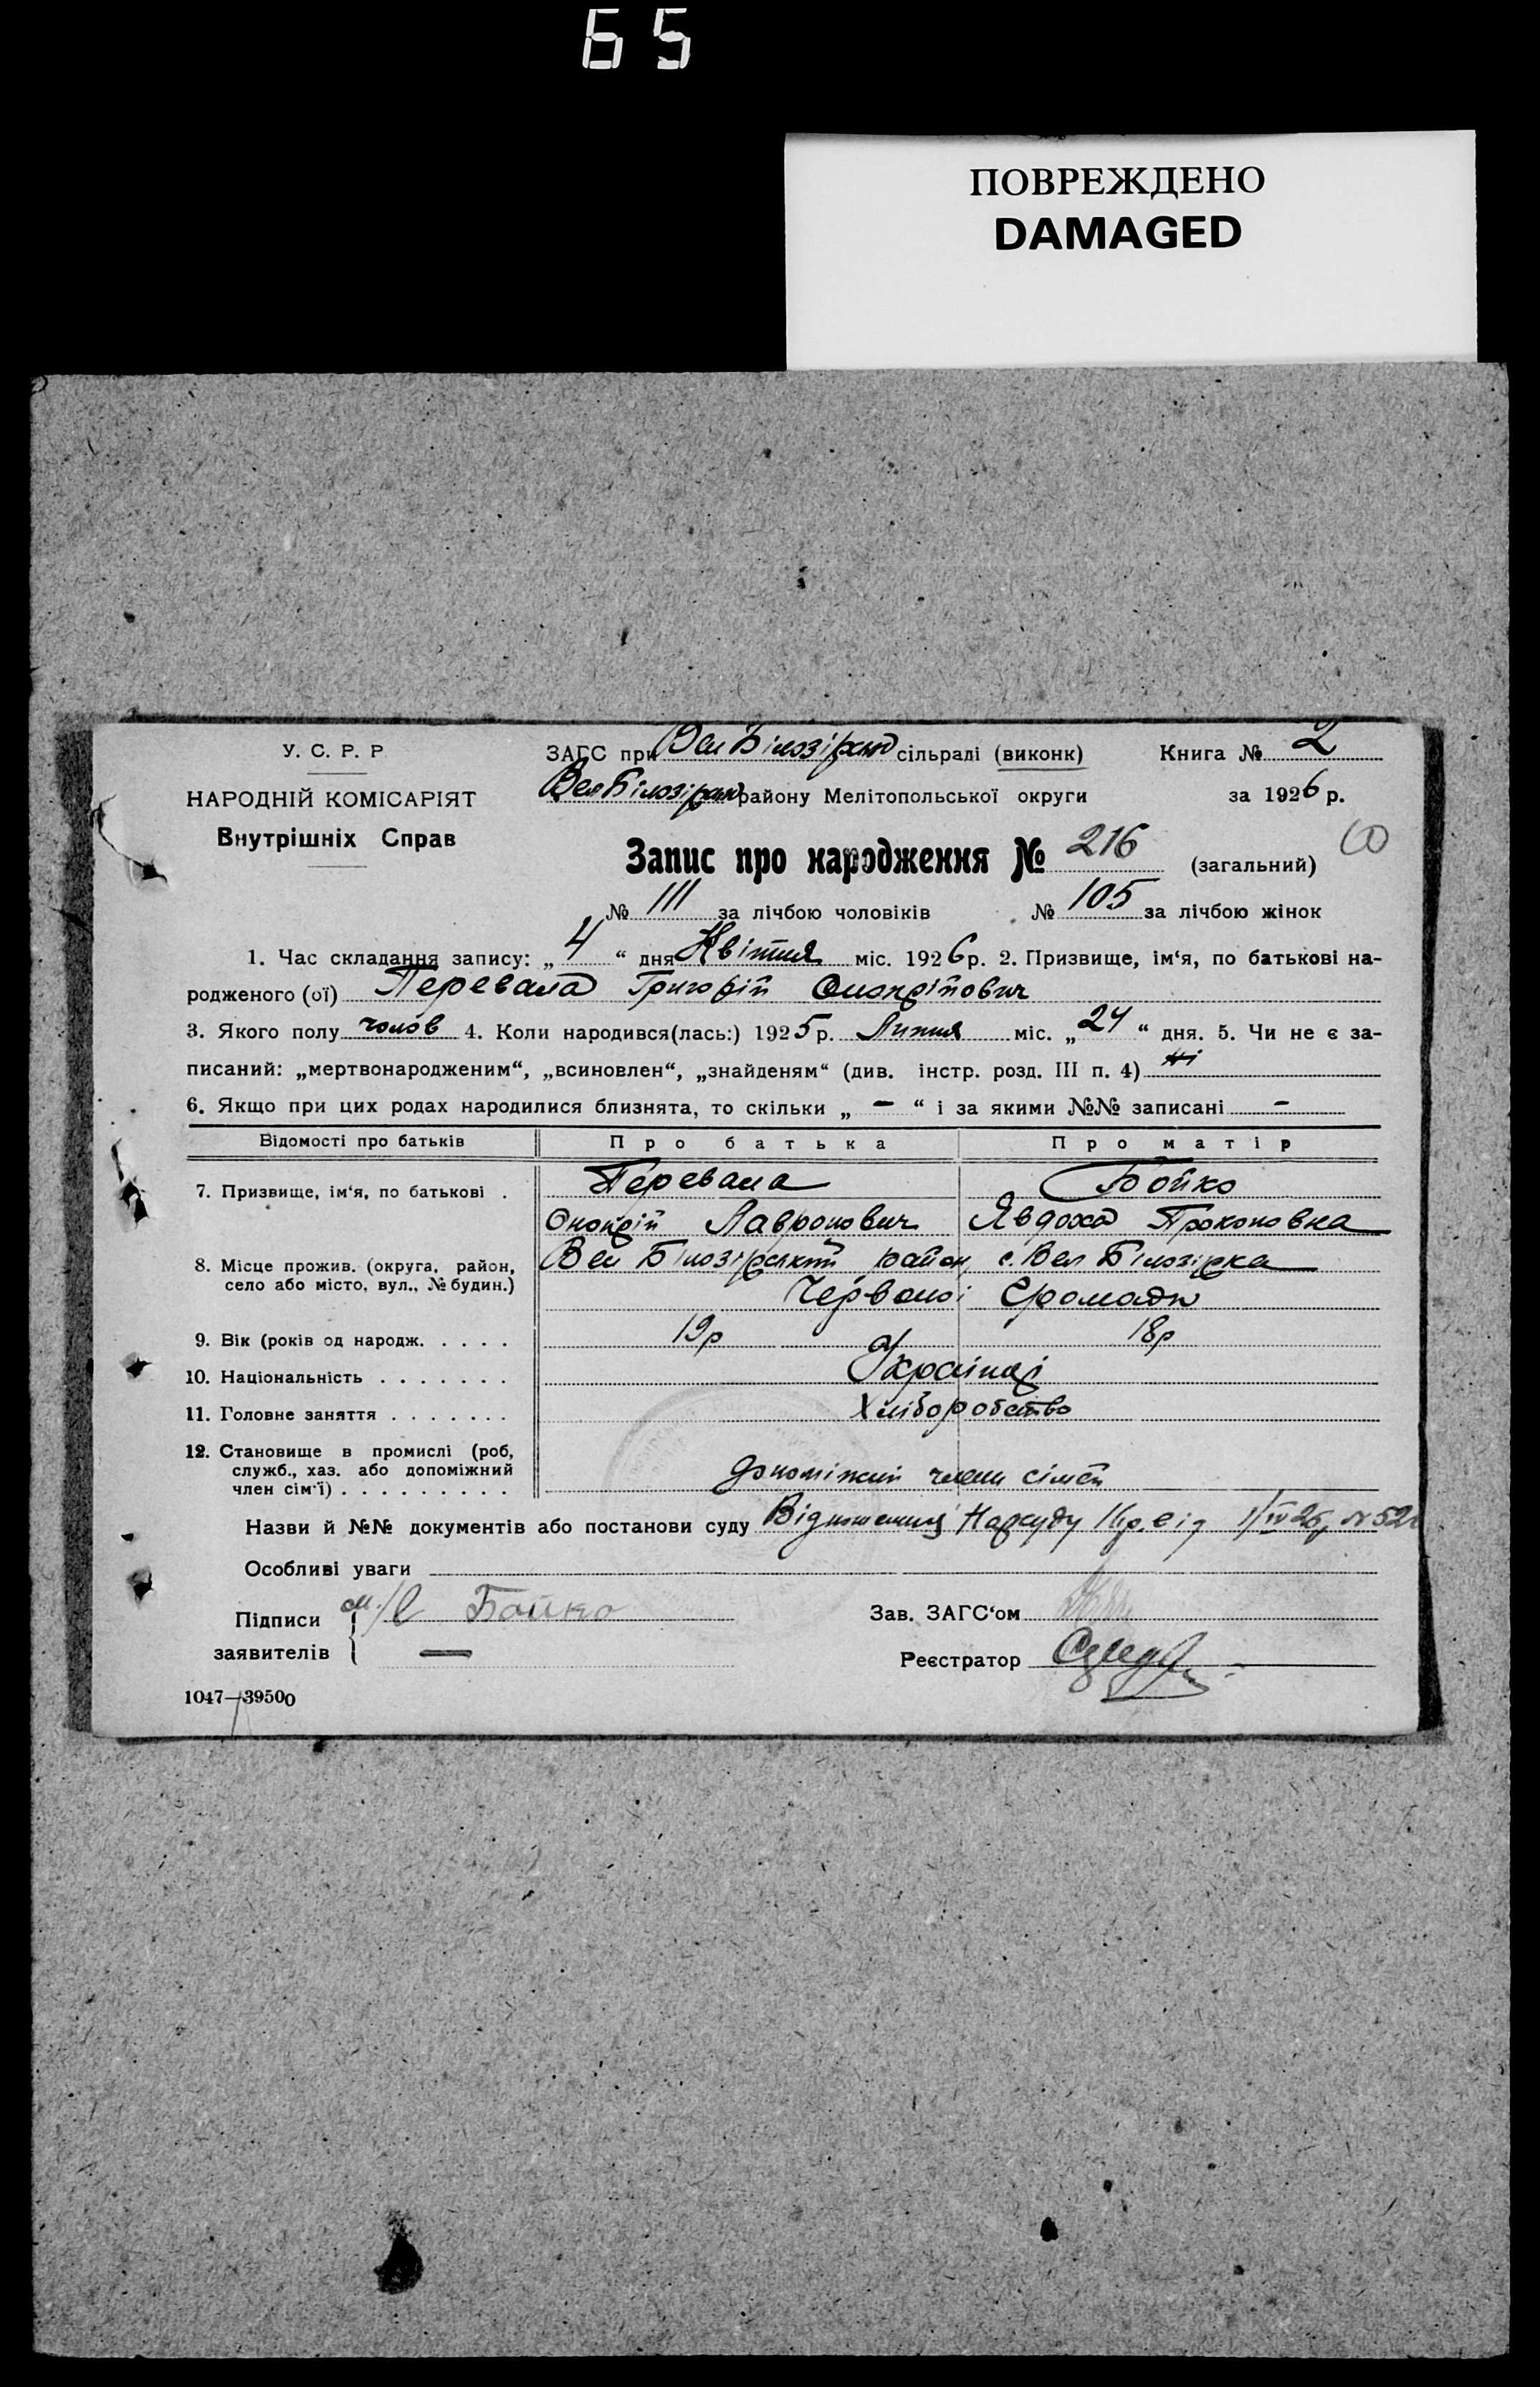 65
ПОВРЕЖДЕНО
DAMAGED
У. С. Р. Р
НАРОДНІЙ КОМІСАРІЯТ
Внутрішніх Справ
ЗАГС при Вел Білозірськ сільраді (виконк) Книга № 2
Вел Білозірськ району Мелітопольської округи за 1926 р.
Запис про народження № 216 (загальний)
№ 111 за лічбою чоловіків № 105 за лічбою жінок
1. Час складання запису: „ 4 “ дня Квітня міс. 1926 р. 2. Призвище, ім‘я, по батькові на-
родженого (ої) Перевала Григорій Онопрійович
3. Якого полу чолов 4. Коли народився(лась:) 1925 р. Липня міс. „ 24 “ дня. 5. Чи не є за-
писаний: „мертвонародженим“, „всиновлен“, „знайденям“ (див. інстр. розд. III п. 4) Ні
6. Якщо при цих родах народилися близнята, то скільки „ – “ і за якими №№ записані –
Відомості про батьків Про батька Про матір
7. Призвище, ім‘я, по батькові . Перевала Бойко
Онопрій Лавронович Явдоха Прокоповна
8. Місце прожив. (округа, район, село або місто, вул., № будин.) Вел Білозірський район, с. Вел Білозірка
Червоної Громади
9. Вік (років од народж. . . . . 19р 18р
10. Національність . . . . . . . Українці
11. Головне заняття . . . . . . . Хліборобство
12. Становище в промислі (роб, служб., хаз. або допоміжний член сім‘ї) . . . . . . . . . допоміжний член сімєй
Назви й №№ документів або постанови суду Відношення Нарсуду від 1/IV 26 № 52
Особливі уваги
Підписи заявителів Бойко
Зав. ЗАГС‘ом
Реєстратор
1047—39500